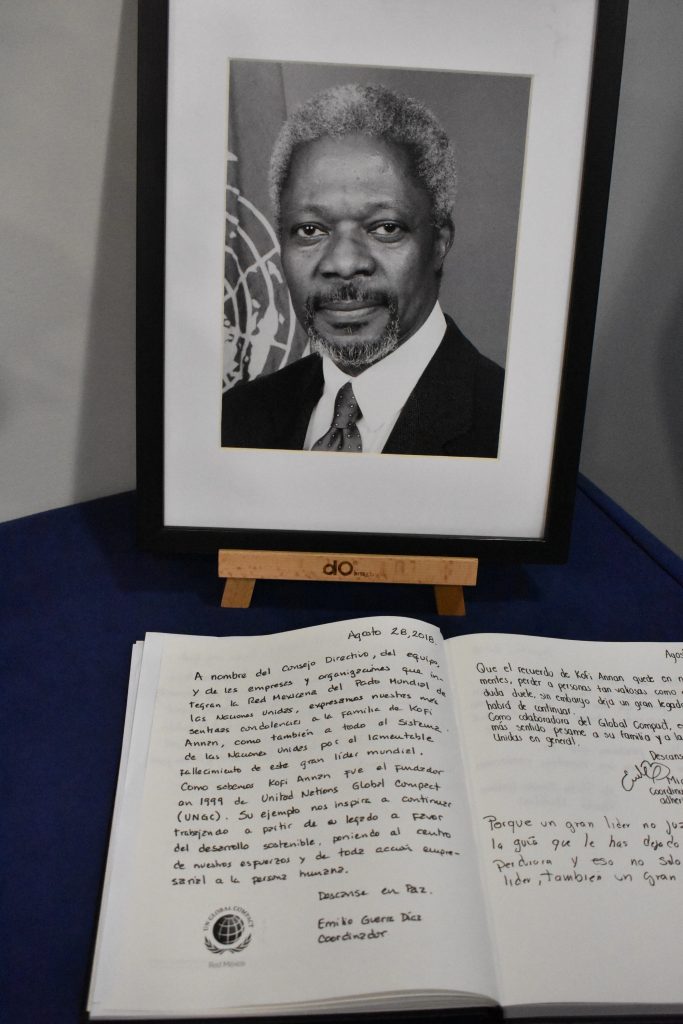 do
Agosto 28, 2018.
A nombre del Consejo Directivo, del equipo,
y de las empresas y organizaciones que in-
tegran la Red Mexicana del Pacto Mundial de
las Naciones Unidas, expresamos nuestras más
sentidas condolencias a la familia de Kofi
Annan, como también a todo el Sistema
de las Naciones Unidas por el lamentable
fallecimiento de este gran líder mundial.
Como sabemos Kofi Annan fue el fundador
en 1999 de United Nations Global Compact
(UNGC). Su ejemplo nos inspira a continuar
trabajando a partir de su legado a favor
del desarrollo sostenible, poniendo al centro
de nuestros esfuerzos y de toda acción empre-
sarial a la persona humana.
Descanse en Paz.
Emilio Guerra Díaz
Coordinador
UN GLOBAL COMPACT
Red México
Que el recuerdo de Kofi Annan quede en n
mentes, perder a personas tan valiosas como
duda duele, sin embargo deja un gran legado
habrá de continuar
Como colaboradora del Global Compact, e
más sentido pésame a su familia y a la
Unidas en general.
Descans
Coordina
adher
Porque un gran líder no juz
la guía que le has dejado
perdurara y eso no solo
líder, también un Gran